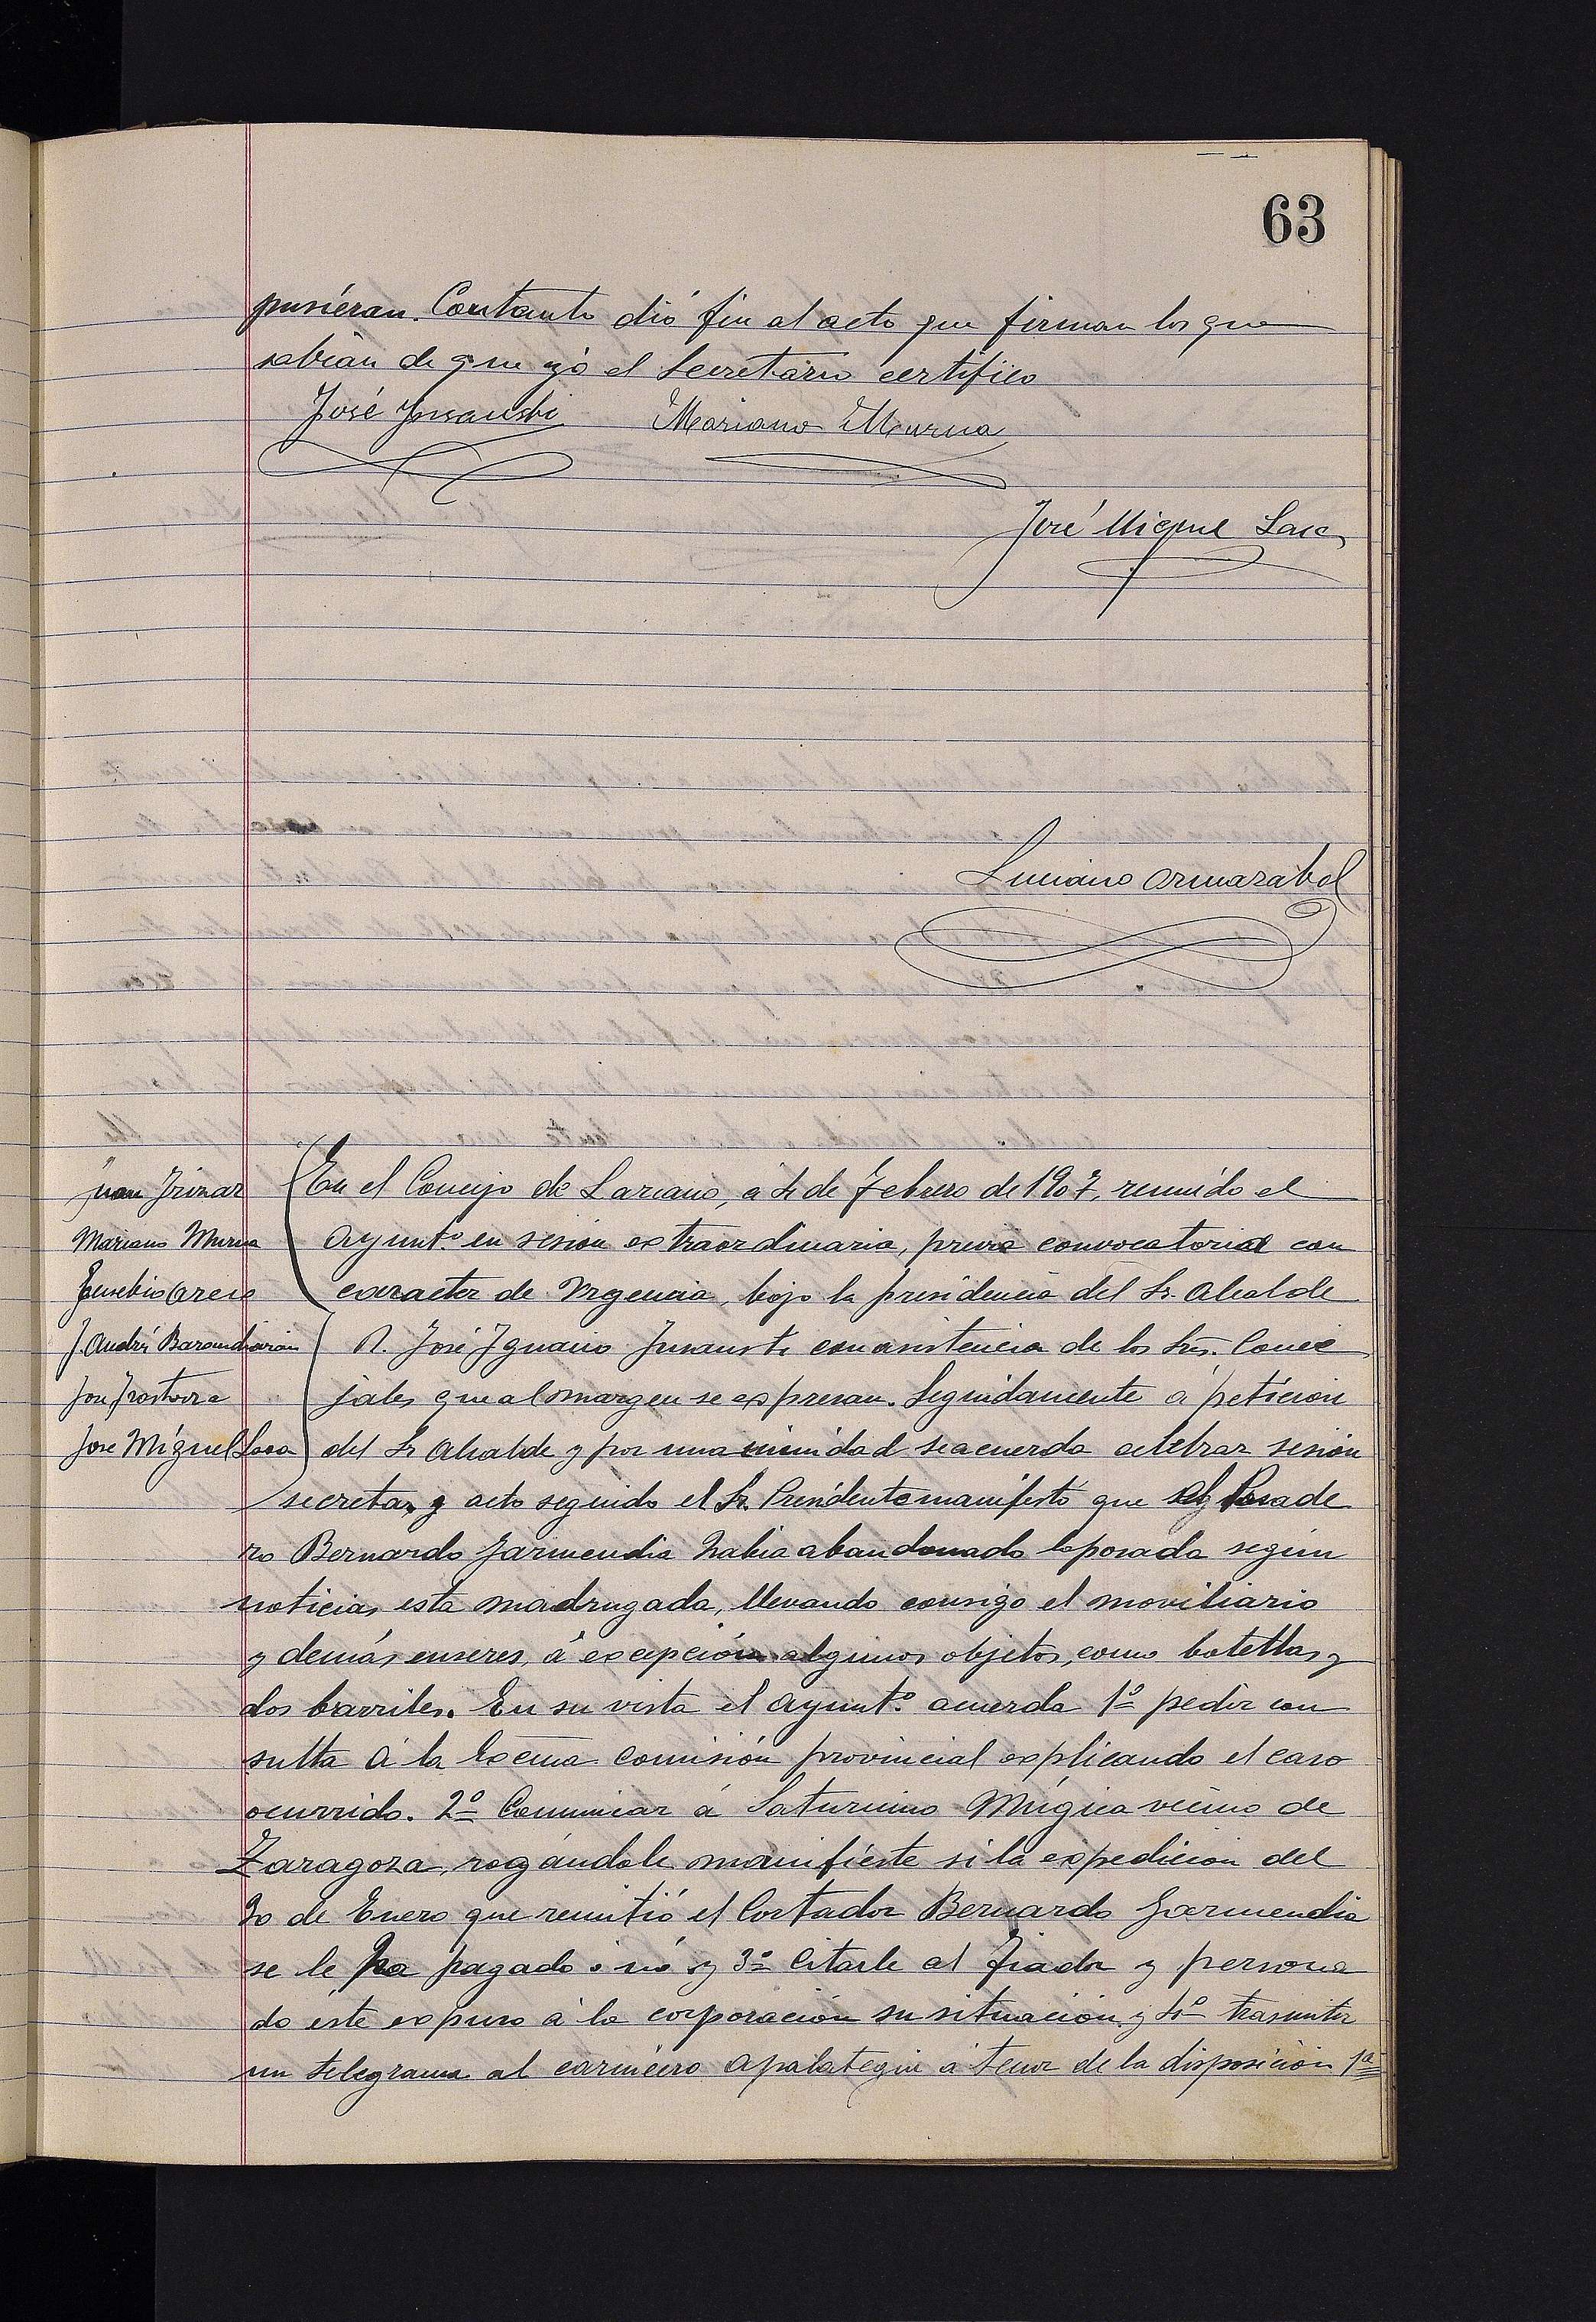 63
pusieran. Contanto dió fin al acto que firman los que
sabian de que yó el Secretario certifico
José Insausti Mariano Murua
José Miguel Lasa
Luciano Ormazabal
Juan Irizar
Mariano Murua
Eusebio Oreio
J. Andrés Barandiarán
José Miguel Lasa
En el Concejo de Lazcano, á 4 de Febrero de 1907, reunido el
Ayunt.º en sesion extraordinaria, previa convocatoria con
caracter de Urgencia, bajo la presidencia del Sr. Alcalde
D. José Ignacio Insausti con asistencia de los Srs. Conce
jales que al margen se expresan. Seguidamente á petición
del Sr Alcalde y por unanimidad se acuerda celebrar sesión
secreta, y acto seguido el Sr. Presidente manifestó que el Posade
ro Bernardo Garmendia habia abandonado la posada según
noticias esta madrugada, llevando consigo el moviliario
y demás enseres, á excepción algunos objetos, como botellas y
dos barriles. En su vista el Ayunt.º acuerda 1º pedir con
sulta á la Excma Comisión provincial explicando el caso
ocurrido. 2º Comunicar á Saturnino Múgica vecino de
Zaragoza, rogándole manifieste si la expedicion del
30 de Enero que remitió el Cortador Bernardo Garmendia
se le ha pagado ó nó y 3º Citarle al Fiador y persona
do éste expuso á la corporación su situación y 4º trasmitir
un telegrama al carnicero Apalategui á tenor de la disposición 1ª